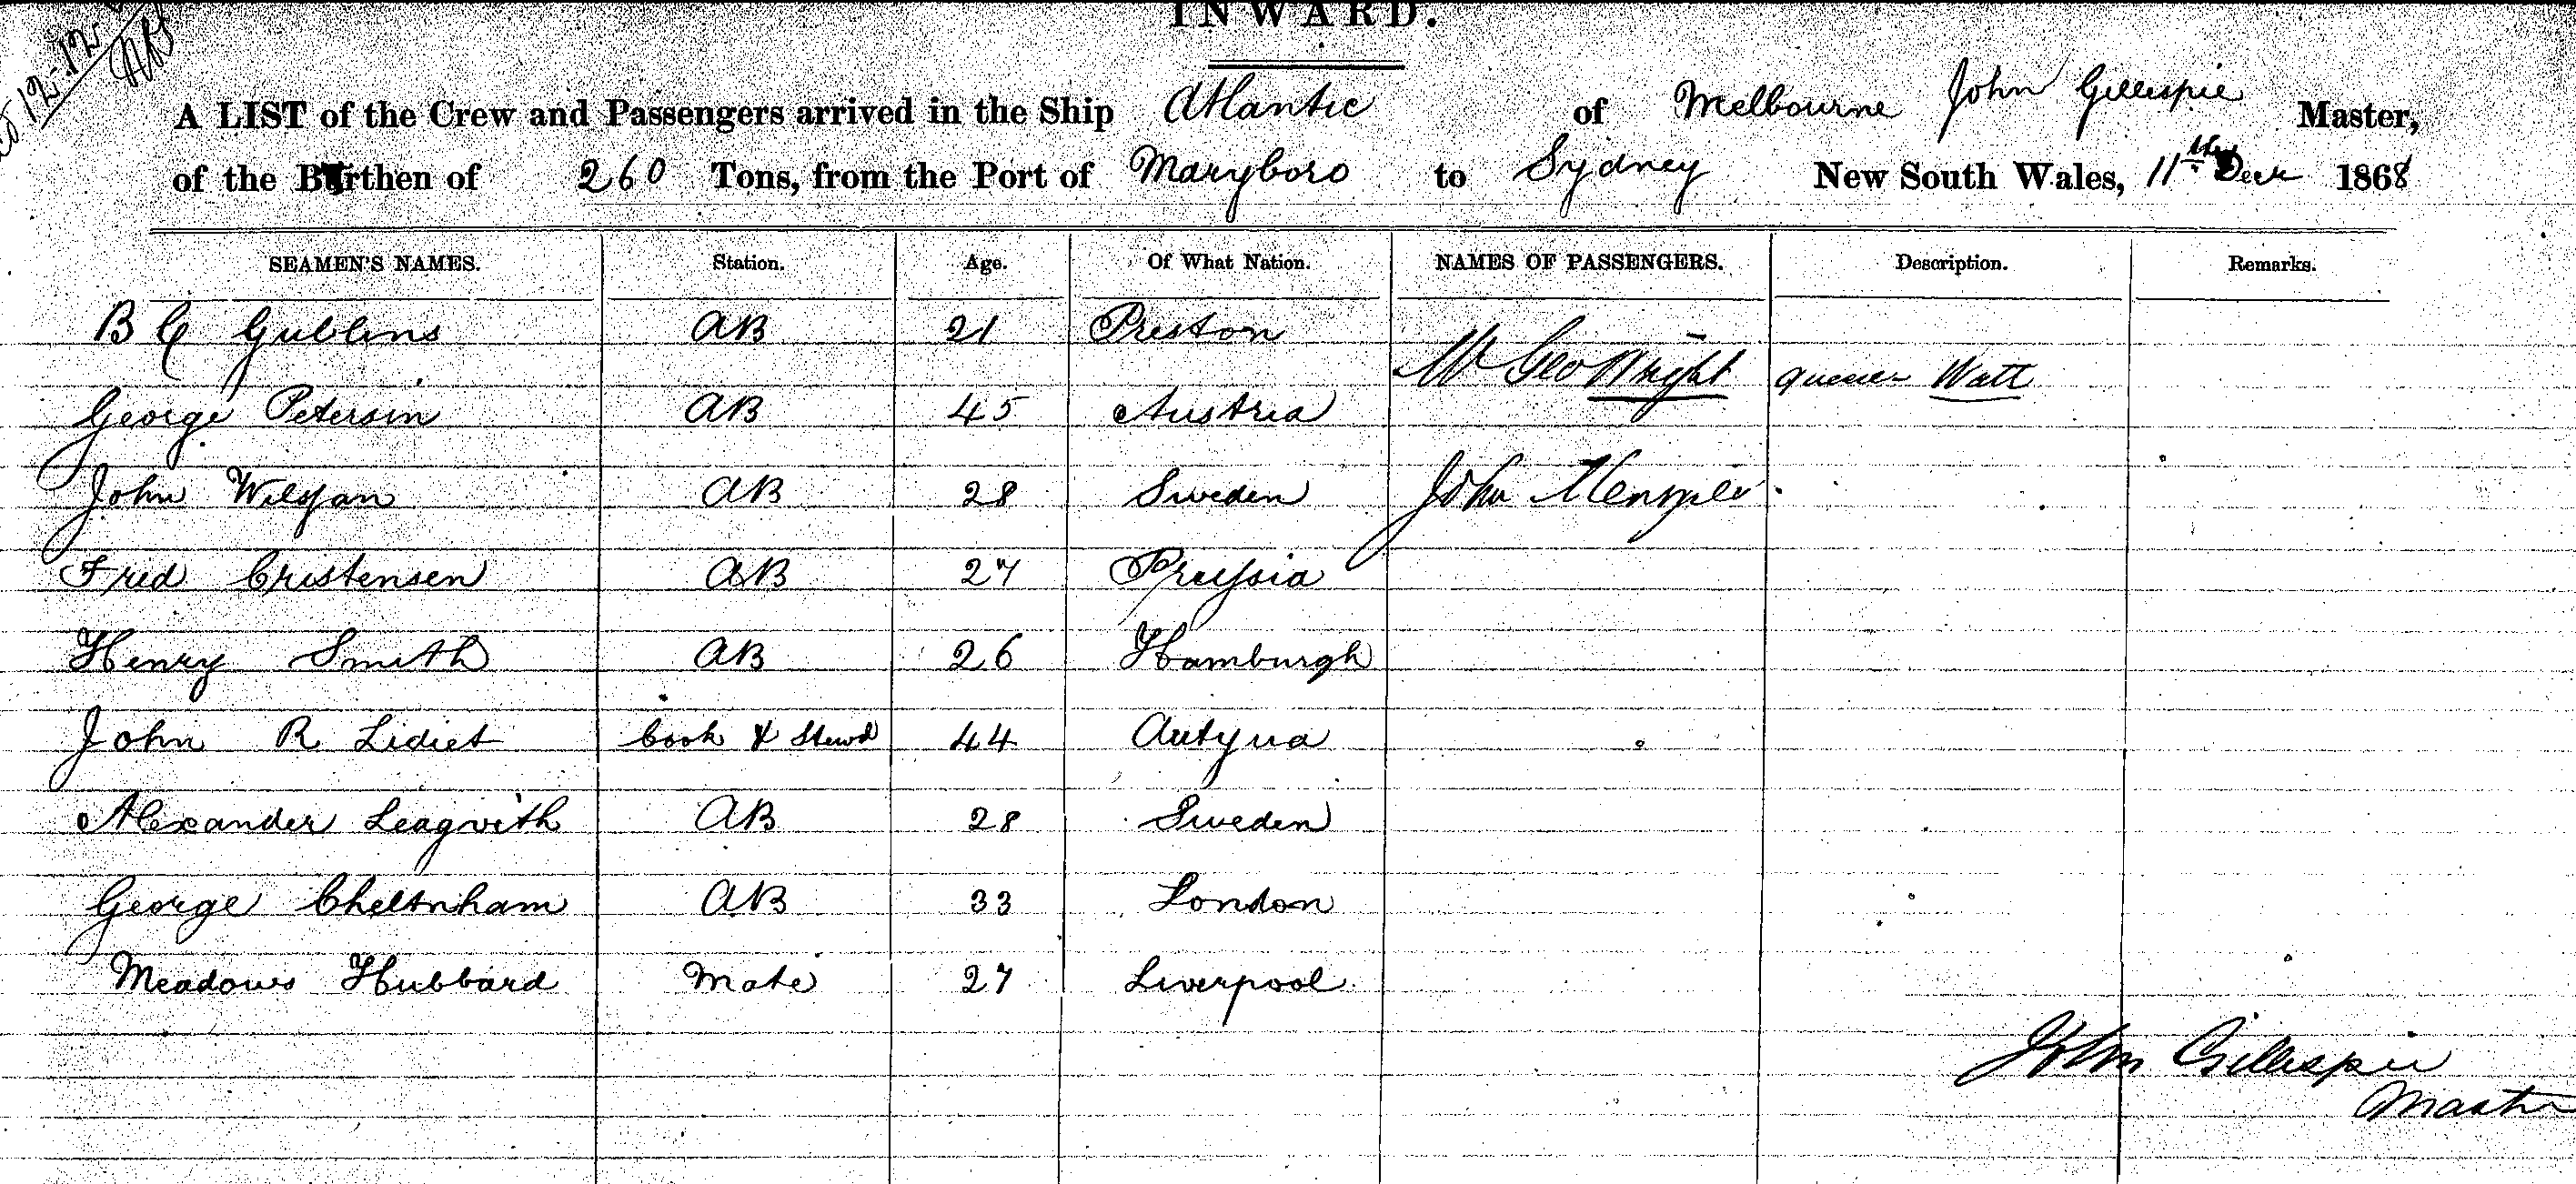 12-12
INWARD.
A LIST of the Crew and Passengers arrived in the Ship Atlantic of Melbourne John Gillespie Master,
of the Burthen of 260 Tons, from the Port of Maryboro to Sydney New South Wales, 11th Decr 1868
SEAMEN'S NAMES. Station. Age. Of What Nation. NAMES OF PASSENGERS. Description. Remarks.
B C Gubbins AB 21 Preston
Mr Geo Wright Watt
George Petersin AB 45 Austria
John Wilsson AB 28 Sweden John
Fred Cristensen AB 27 Prussia
Henry Smith AB 26 Hamburgh
John R Lidiet Cook & Stewd 44
Alexander Leagvith AB 28 Sweden
George Cheltnham AB 33 London
Meadows Hubbard Mate 27 Liverpool
John Gillespie
Master